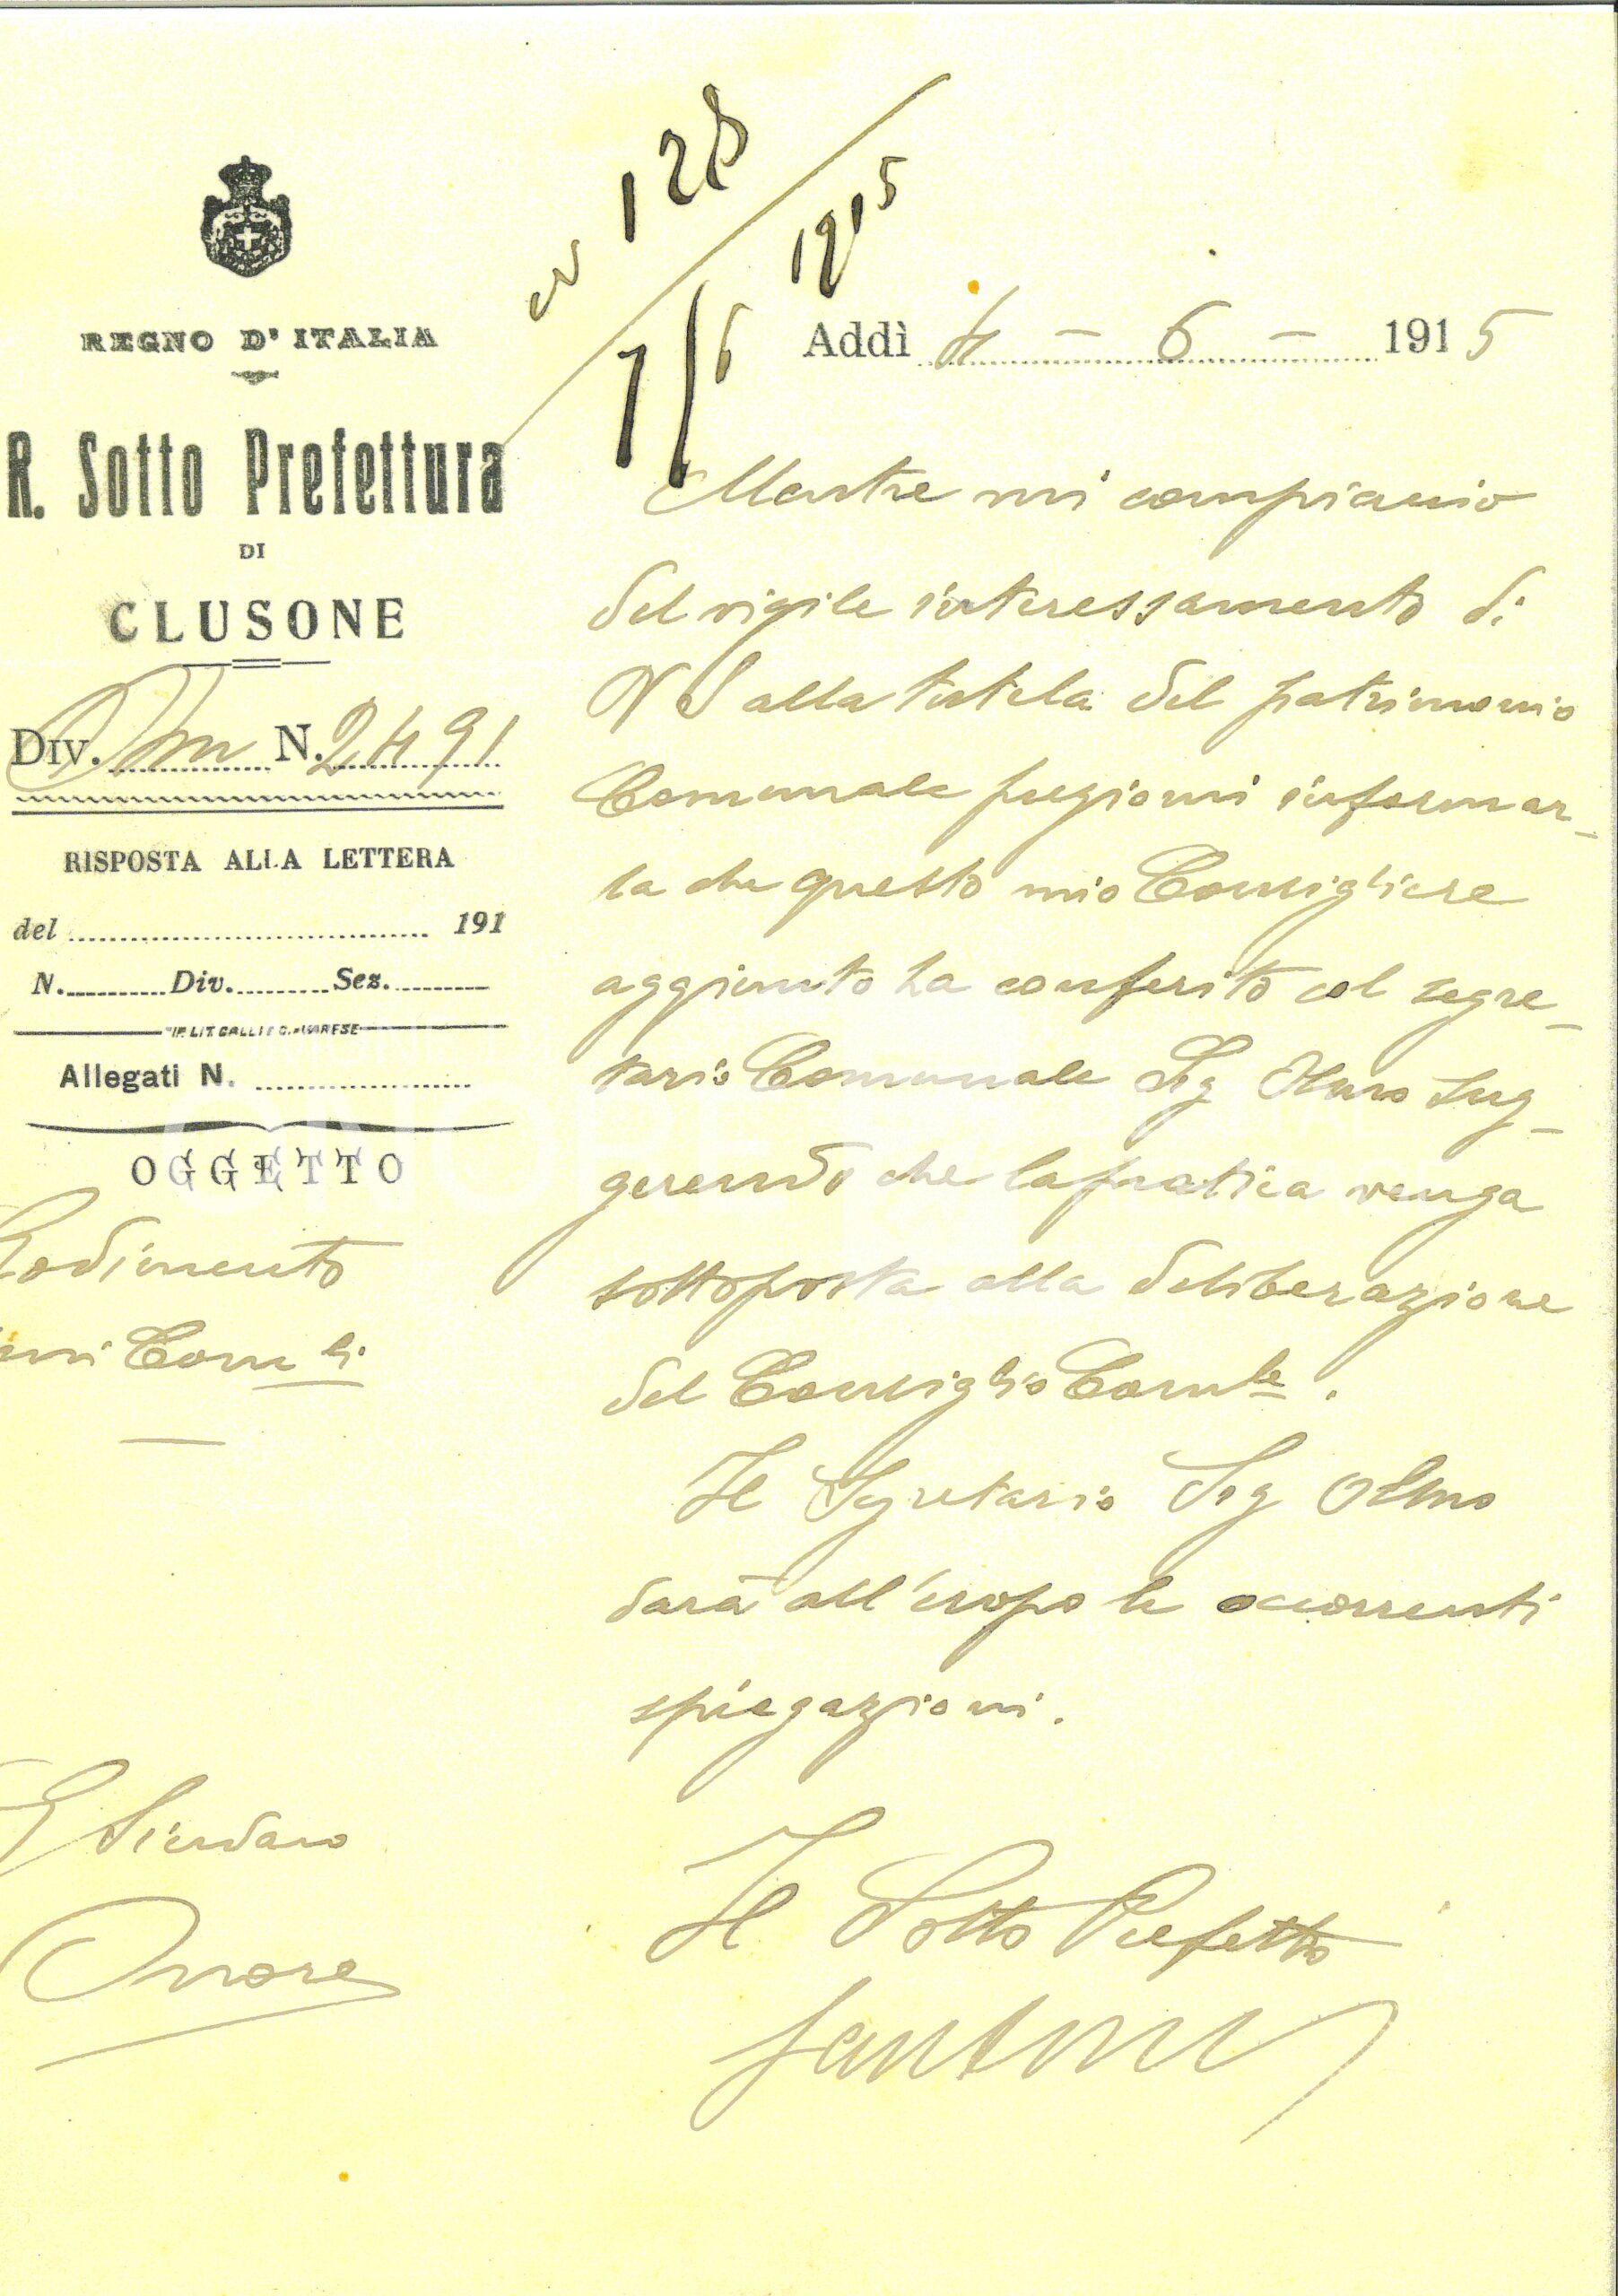 N 128
1915
7/6
REGNO D'ITALIA
R. Sotto Prefettura
DI
CLUSONE
Div. Am N. 2491
RISPOSTA ALLA LETTERA
del 191
N. Div. Sez.
TIP. LIT. GALLI E C. - VARESE
Allegati N.
OGGETTO
Godimento
beni Com li
Il Sindaco
Onore
Addì 4 - 6 - 1915
Mentre mi compiaccio
del vigile interessamento di
V S alla tutela del patrimonio
Comunale pregiomi informar-
la che questo mio Consigliere
aggiunto ha conferito col segre-
tario Comunale Sig Olmo sug-
gerendo che la pratica venga
sottoposta alla deliberazione
del Consiglio Comle.
Il Segretario Sig Olmo
darà all'uopo le occorrenti
spiegazioni.
Il Sotto Prefetto